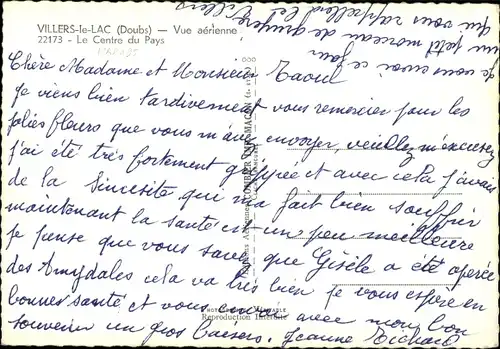 VILLERS-le-LAC (Doubs) — Vue aérienne
22173 - Le Centre du Pays
Chère Madame et Monsieur Raoul
Je viens bien tardivement vous remercier pour les
jolies fleurs que vous m'avez envoyer, veuillez m'excusez
j'ai été très fortement grippée et avec cela j'avais
de la Sinusite qui m'a fait bien souffrir
maintenant la santé est un peu meilleure
je pense que vous savez que Gisèle a été opérée
des Amygdales cela va très bien je vous espère en
bonnes santé et vous envoie avec mon bon
souvenir un gros baisers. Jeanne Richard
Je vous envoie ce jour
un petit morceau de gruyère
qui vous rappellera les Villers
Reproduction Interdite